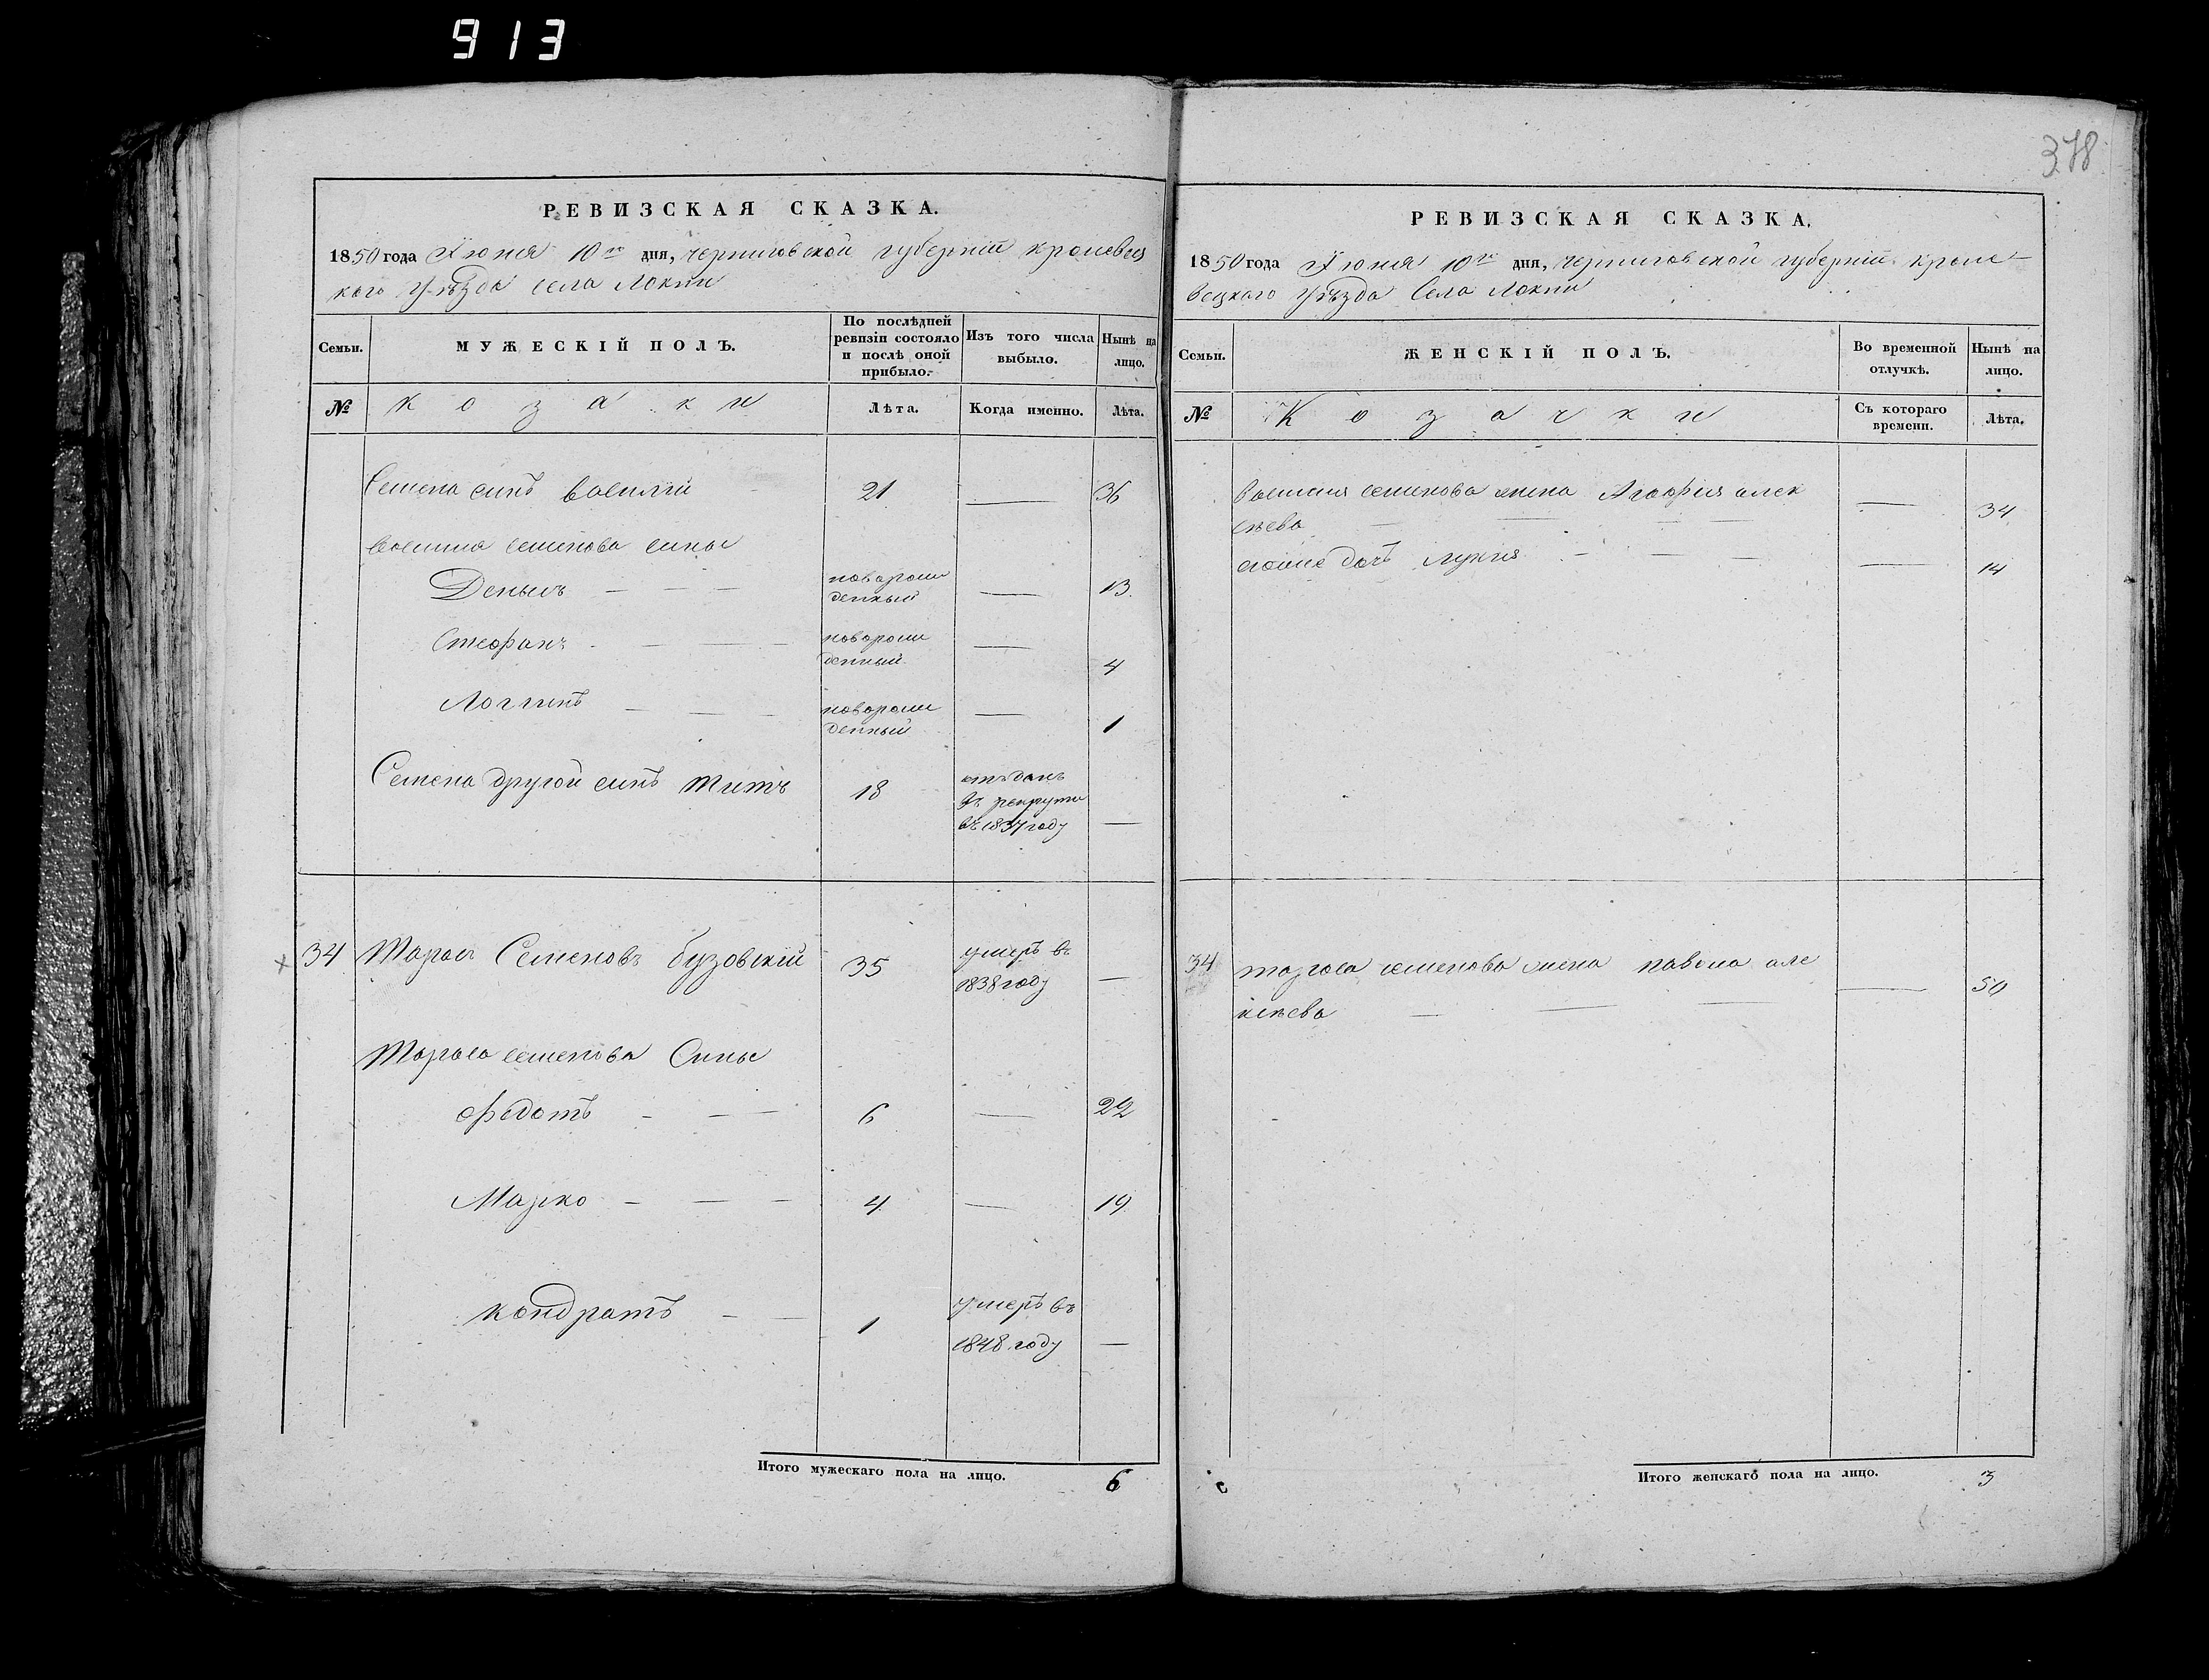 913
378
РЕВИЗСКАЯ СКАЗКА.
1850 года Іюня 10го дня, черниговской губерніи кролевец
кого Уѣзда села Локни
Семьи.
МУЖЕСКІЙ ПОЛЪ.
По послѣдней ревизіи состояло и послѣ оной прибыло.
Изъ того числа выбыло.
Нынѣ на лицо.
№
козаки
Лѣта.
Когда именно.
Лѣта.
Семена синъ василій 21 — 36
василия семенова сины
Демьянъ — — — новорож
денный — 13
Стефанъ — — новорож
денный — 4
Логгинъ — — — новорож
денный — 1
Семена другой синъ титъ 18 отъданъ
въ рекруты
въ 1837 году —
34 Тарасъ Семеновъ бузовскій 35 умеръ въ
1838 году —
Тараса семенова Сины
Федотъ — — — 6 — 22
Марко — — — 4 — 19
кондратъ — — 1 умеръ въ
1848 году —
Итого мужескаго пола на лицо. 6
РЕВИЗСКАЯ СКАЗКА.
1850 года Іюня 10го дня, черниговской губерніи кроле-
вецкого Уѣзда Села Локни
Семьи.
ЖЕНСКІЙ ПОЛЪ.
Во временной отлучкѣ.
Нынѣ на лицо.
№
Козачки
Съ котораго времени.
Лѣта.
василия семенова жена Агафия алек
сѣева — — — — — 34
дочъ — — — — 14
34 тараса семенова жена але
ксѣева — — — — 50
Итого женскаго пола на лицо. 3